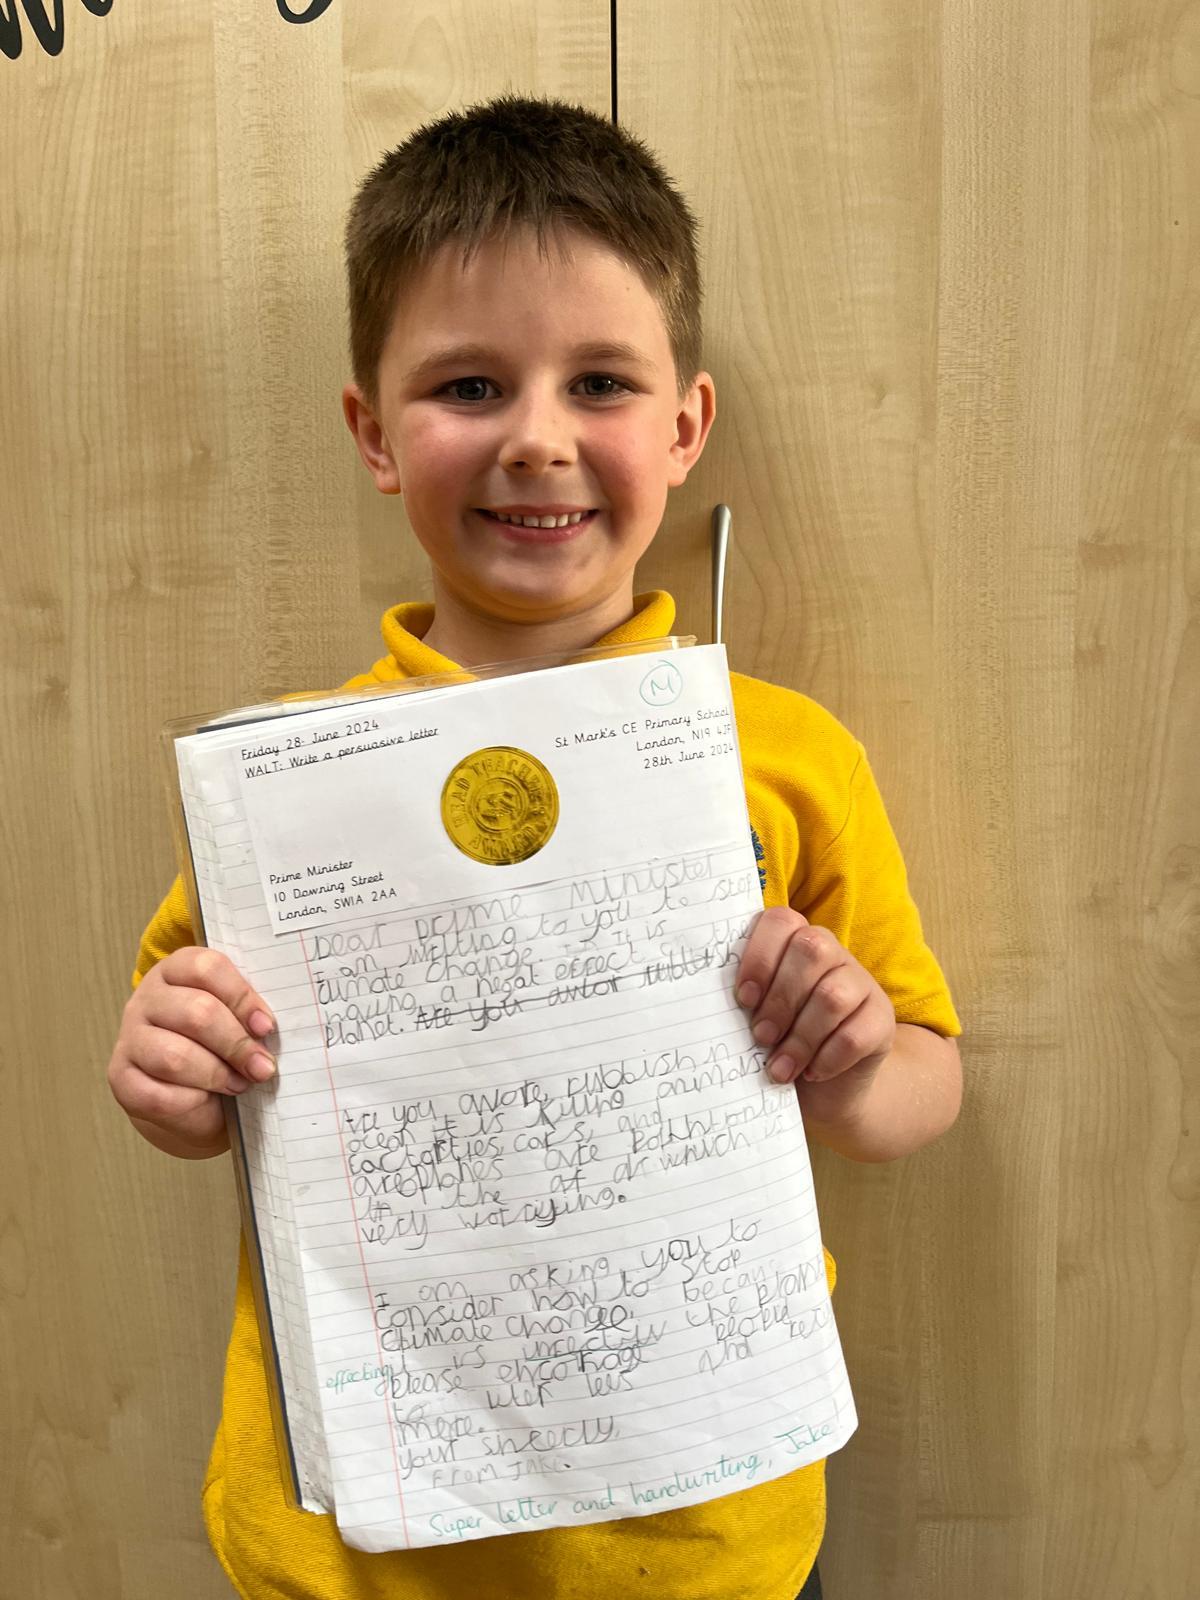 M
Friday 28th June 2024
WALT: Write a persuasive letter
St Mark's CE Primary School
London, N19 4JF
28th June 2024
HEAD TEACHER'S
AWARD
Prime Minister
10 Downing Street
London, SW1A 2AA
Dear prime minister
I am writing to you to stop
climate change. It is
a negat effect on the
Planet. Are your awor rubbish
Are you awore rubbish in
ocean it is killing animals.
factorties, cars, and
areoplanes are
in the at air which is
very worrying.
I am asking you to
consider how to stop
Climate change, becaus
it is the planet
effecting
Please encorage people
to user less and recy
more.
your sincerly,
From Jake.
Super letter and handwriting, Jake!